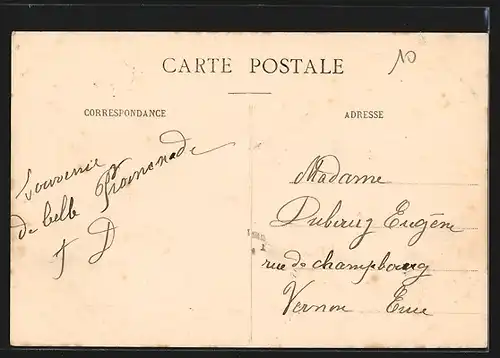 10
CARTE POSTALE
CORRESPONDANCE
ADRESSE
Souvenir
de belle Promenade
J D
Madame
Dubourg Eugène
rue de champbourg
Vernon Eure